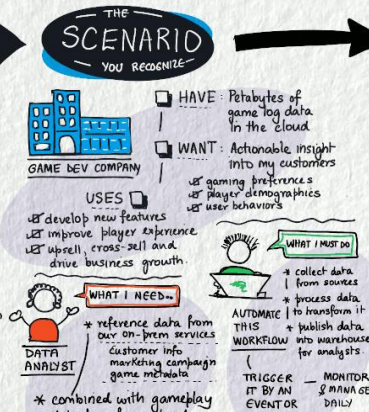 THE
SCENARIO
YOU RECOGNIZE
GAME DEV COMPANY
HAVE: Petabytes of
game log data
in the cloud
WANT: Actionable insight
into my customers
gaming preferences
player demographics
user behaviors
USES
develop new features
improve player experience
upsell, cross-sell and
drive business growth.
DATA
ANALYST
WHAT I NEED..
* reference data from
our on-prem services
Customer info
marketing campaign
game metadata
* combined with gameplay
WHAT I MUST DO
* collect data
from sources
* process data
to transform it
* publish data
into warehouse
for analysts.
AUTOMATE
THIS
WORKFLOW
TRIGGER
IT BY AN
EVENT OR
MONITOR
& MANAGE
DAILY